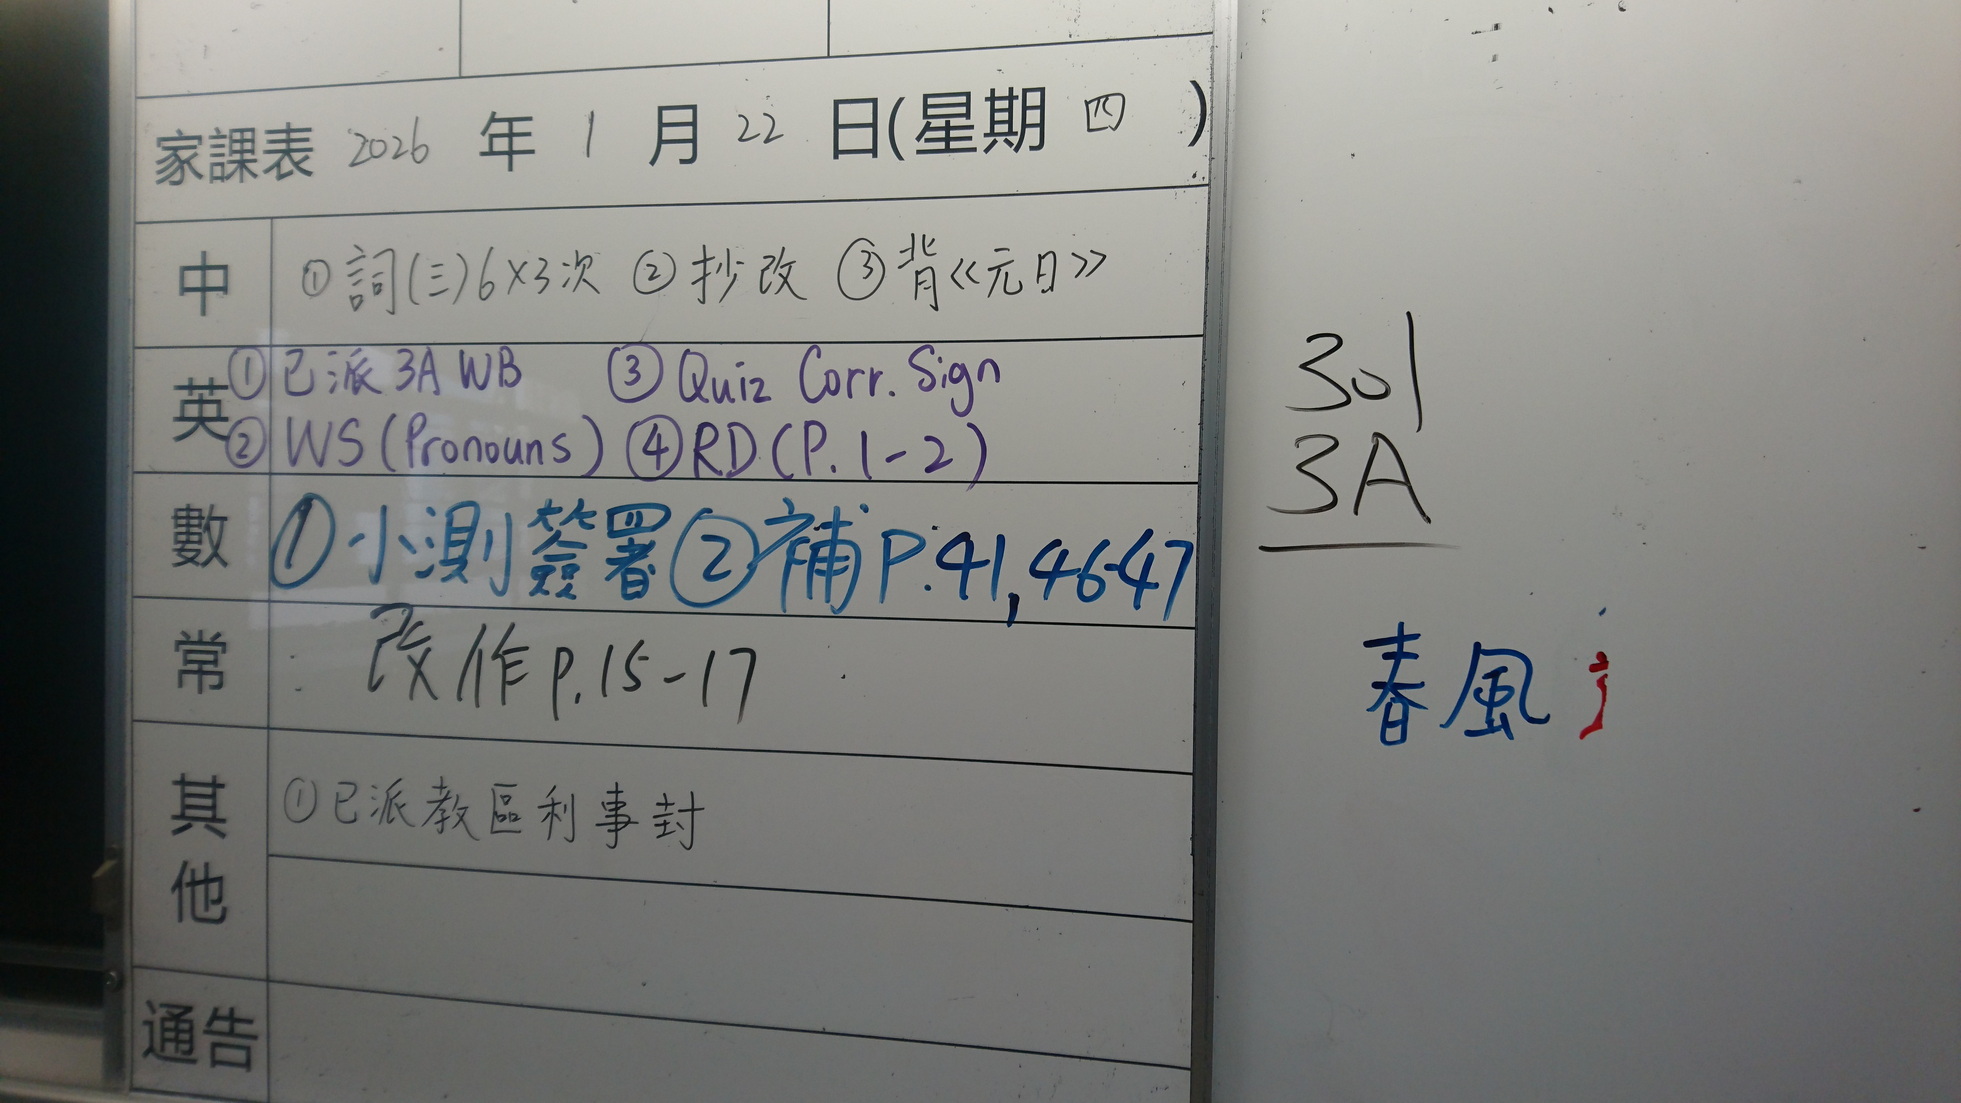 家課表 2026 年 1 月 22 日(星期 四 )
中 ①詞(三)6×3次 ②抄改 ③背《元日》
英 ①已派3A WB ③Quiz Corr. Sign
②WS(Pronouns) ④RD(P.1-2)
數 ①小測簽署②補P.41,46-47
常 改作p.15-17
其他 ①已派教區利事封
通告
301
3A
春風